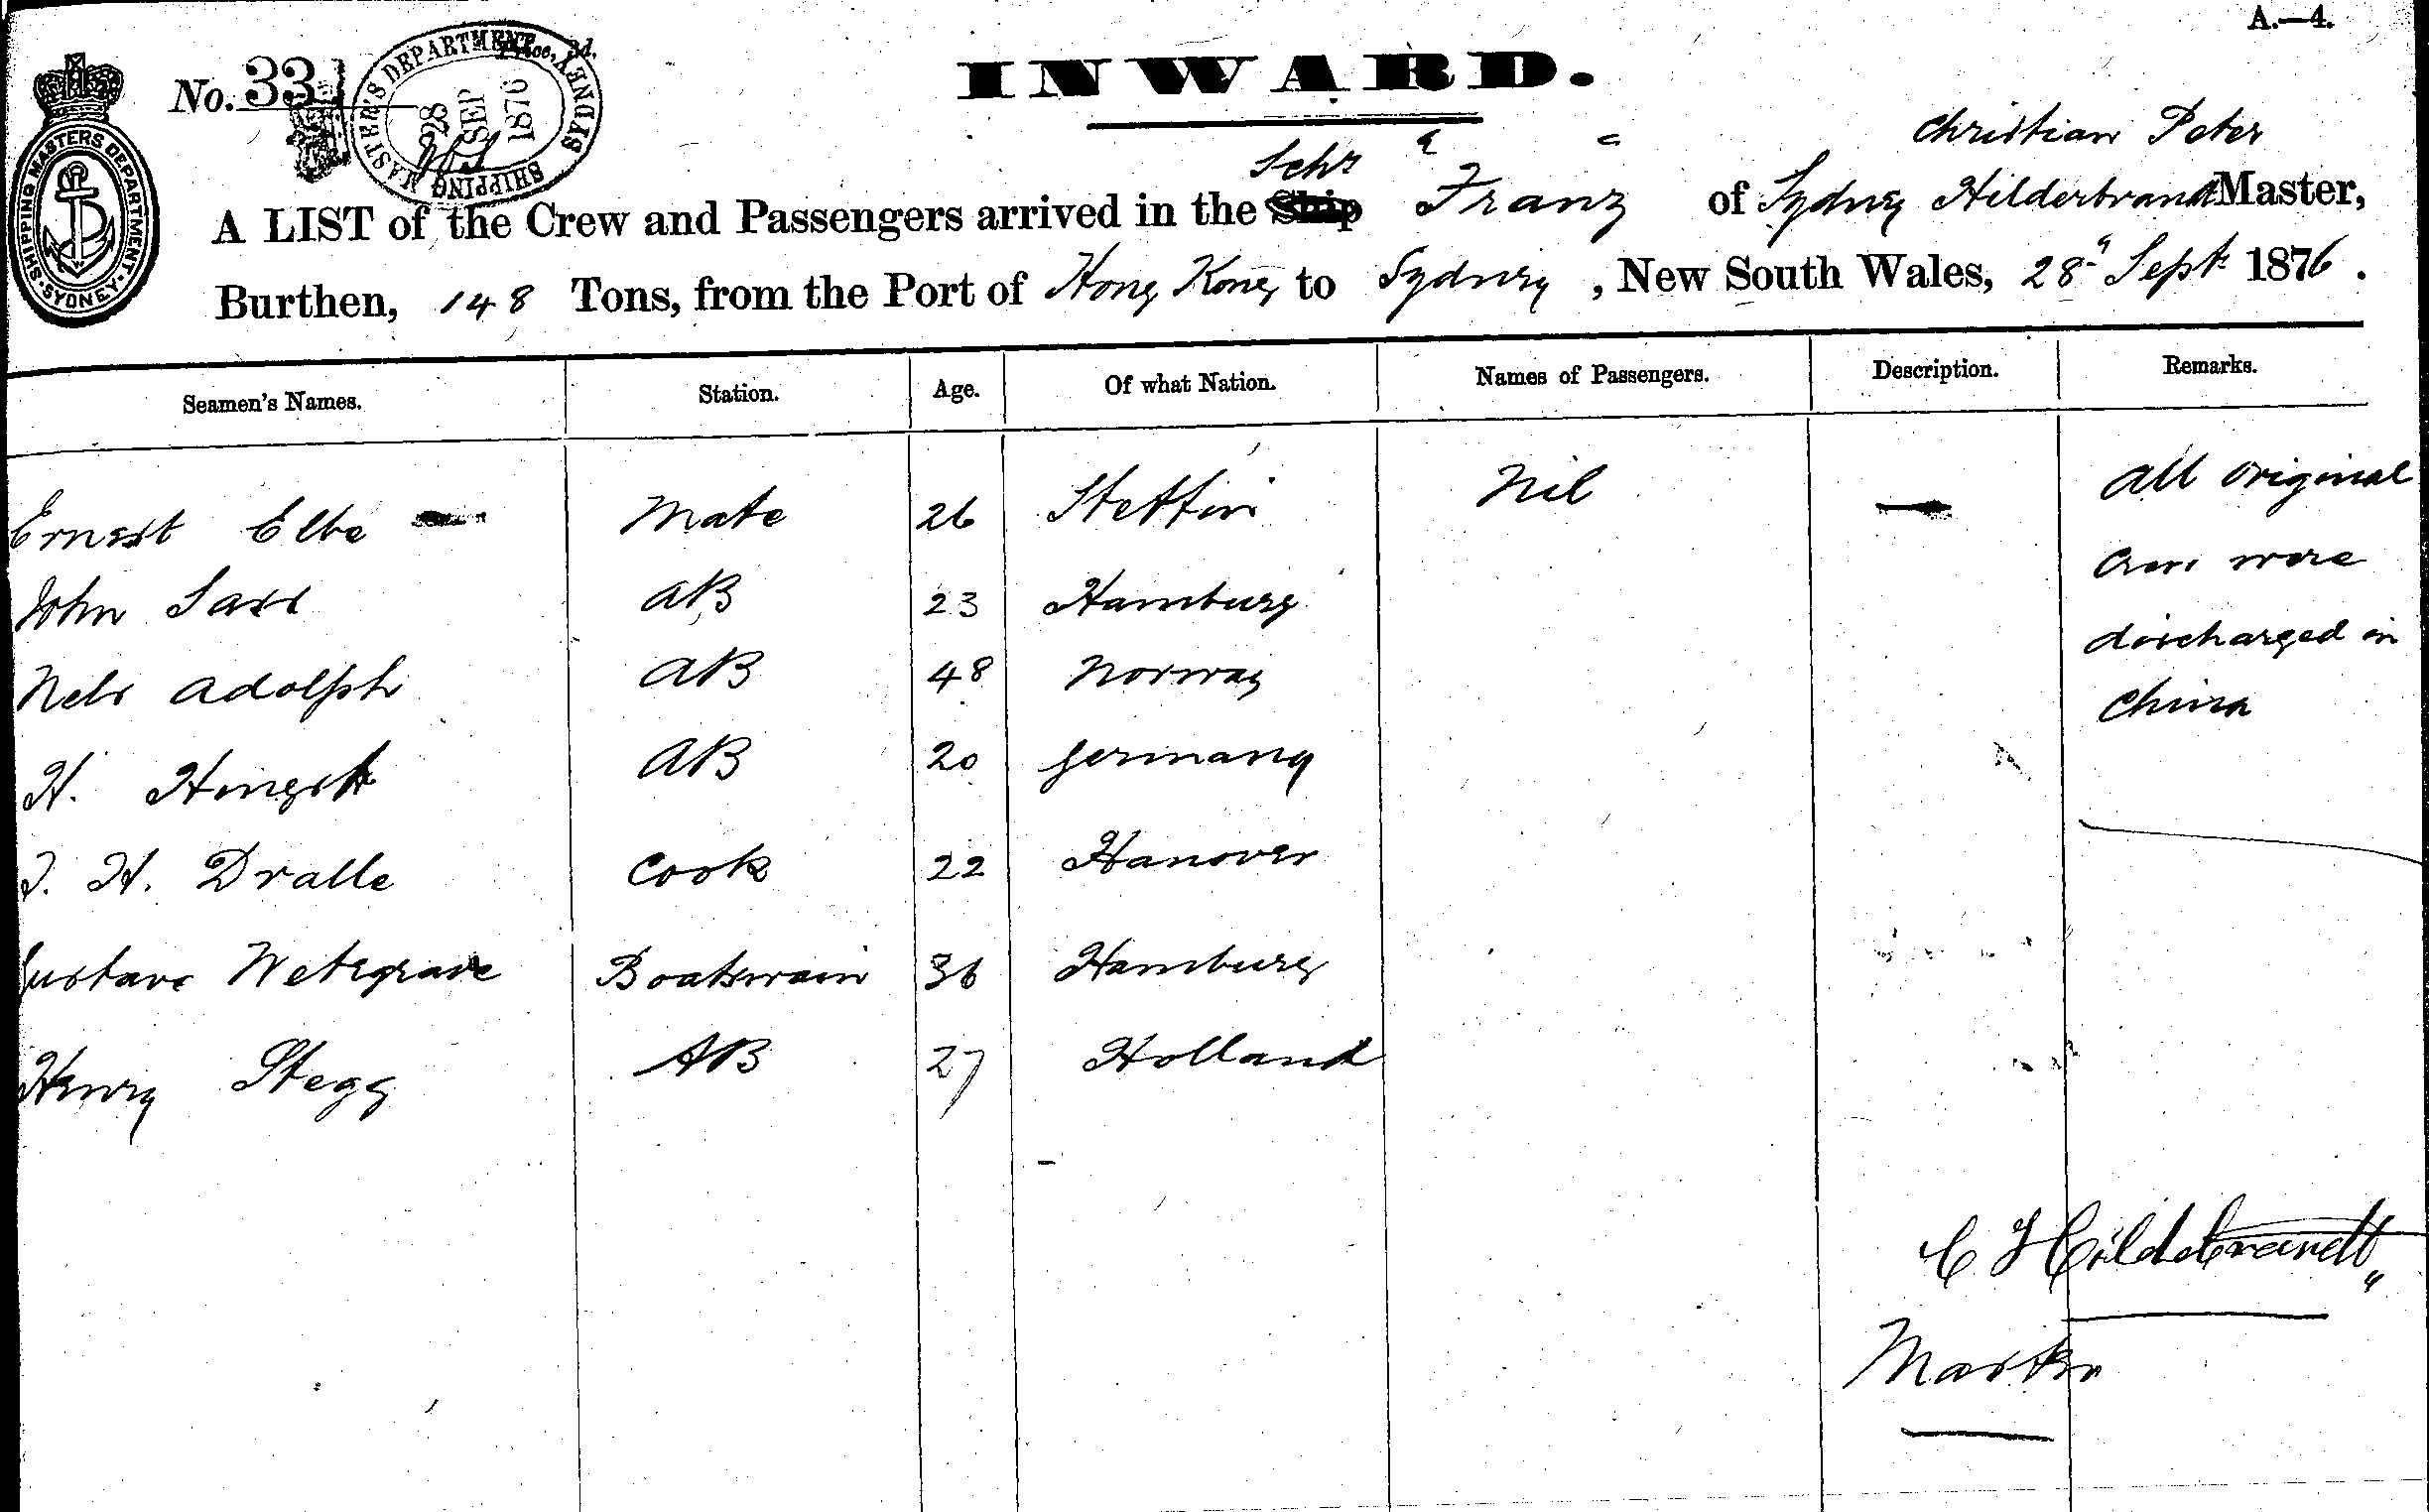 A.—4.
No. 331
SHIPPING MASTER'S DEPARTMENT SYDNEY
28 SEP 1876
SHIPPING MASTERS DEPARTMENT. SYDNEY.
INWARD.
Christian Peter
Schr
A LIST of the Crew and Passengers arrived in the Ship "Franz" of Sydney Hilderbrand Master,
Burthen, 148 Tons, from the Port of Hong Kong to Sydney, New South Wales, 28th Sept 1876.
Seamen's Names. Station. Age. Of what Nation. Names of Passengers. Description. Remarks.
Ernest Elbe Mate 26 Stettin Nil — All original
John Sass AB 23 Hamburg Crew were
Nels Adolph AB 48 Norway discharged in
H. Hingst AB 20 Germany China
H. Dralle Cook 22 Hanover
Gustave Wetegrave Boatswain 36 Hamburg
Henry Stegg AB 27 Holland
C Hildebrandt
Master